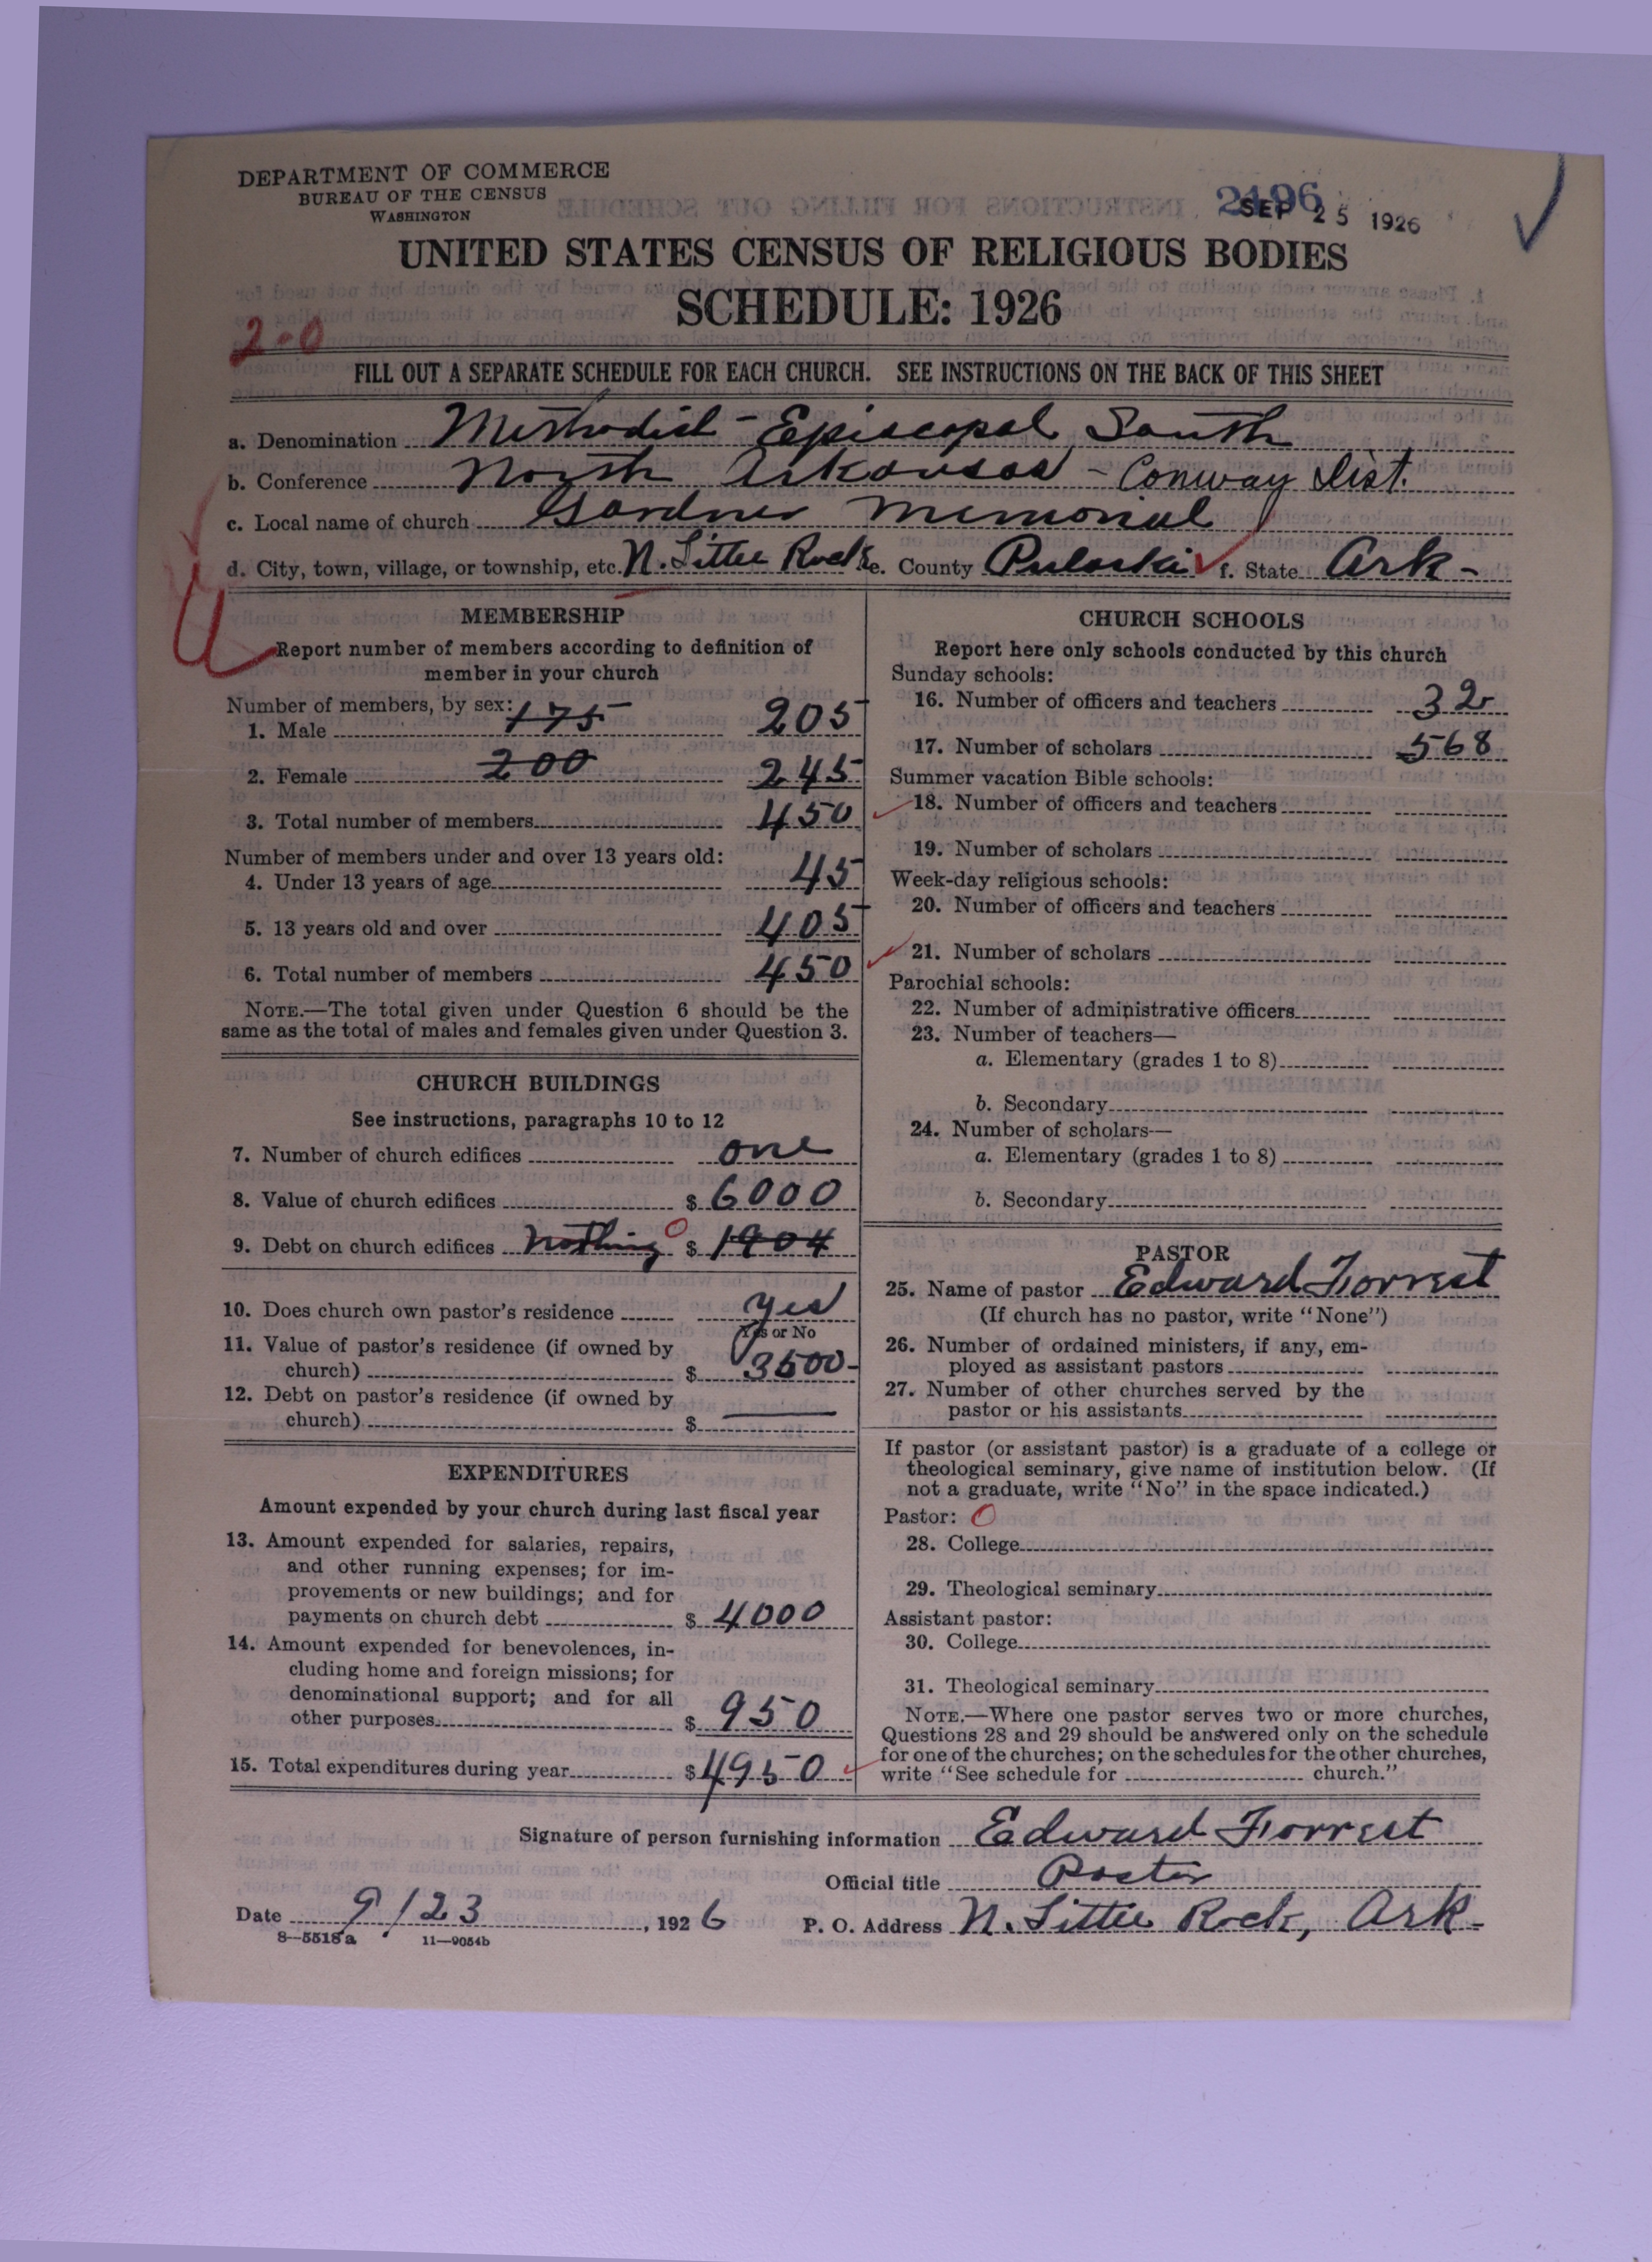 DEPARTMENT OF COMMERCE
BUREAU OF THE CENSUS
WASHINGTON
2196
SEP 25 1926
UNITED STATES CENSUS OF RELIGIOUS BODIES
SCHEDULE: 1926
2-0
FILL OUT A SEPARATE SCHEDULE FOR EACH CHURCH. SEE INSTRUCTIONS ON THE BACK OF THIS SHEET
a. Denomination Methodist-Episcopal South
b. Conference North Arkansas - Conway Dist.
c. Local name of church Gardner Memorial
d. City, town, village, or township, etc. N. Little Rock e. County Pulaski f. State Ark-
MEMBERSHIP
Report number of members according to definition of
member in your church
Number of members, by sex:
1. Male 175 205
2. Female 200 245
3. Total number of members 450
Number of members under and over 13 years old:
4. Under 13 years of age 45
5. 13 years old and over 405
6. Total number of members 450
NOTE.—The total given under Question 6 should be the
same as the total of males and females given under Question 3.
CHURCH BUILDINGS
See instructions, paragraphs 10 to 12
7. Number of church edifices one
8. Value of church edifices $ 6000
9. Debt on church edifices Nothing 0 $ 1904
10. Does church own pastor's residence yes
Yes or No
11. Value of pastor's residence (if owned by
church) $ 3500-
12. Debt on pastor's residence (if owned by
church) $
EXPENDITURES
Amount expended by your church during last fiscal year
13. Amount expended for salaries, repairs,
and other running expenses; for im-
provements or new buildings; and for
payments on church debt $ 4000
14. Amount expended for benevolences, in-
cluding home and foreign missions; for
denominational support; and for all
other purposes $ 950
15. Total expenditures during year $ 4950
CHURCH SCHOOLS
Report here only schools conducted by this church
Sunday schools:
16. Number of officers and teachers 32
17. Number of scholars 568
Summer vacation Bible schools:
18. Number of officers and teachers
19. Number of scholars
Week-day religious schools:
20. Number of officers and teachers
21. Number of scholars
Parochial schools:
22. Number of administrative officers
23. Number of teachers—
a. Elementary (grades 1 to 8)
b. Secondary
24. Number of scholars—
a. Elementary (grades 1 to 8)
b. Secondary
PASTOR
25. Name of pastor Edward Forrest
(If church has no pastor, write "None")
26. Number of ordained ministers, if any, em-
ployed as assistant pastors
27. Number of other churches served by the
pastor or his assistants
If pastor (or assistant pastor) is a graduate of a college or
theological seminary, give name of institution below. (If
not a graduate, write "No" in the space indicated.)
Pastor: 0
28. College
29. Theological seminary
Assistant pastor:
30. College
31. Theological seminary
NOTE.—Where one pastor serves two or more churches,
Questions 28 and 29 should be answered only on the schedule
for one of the churches; on the schedules for the other churches,
write "See schedule for church."
Signature of person furnishing information Edward Forrest
Official title Pastor
Date 9/23, 1926 P. O. Address N. Little Rock, Ark-
8—5518a 11—9054b